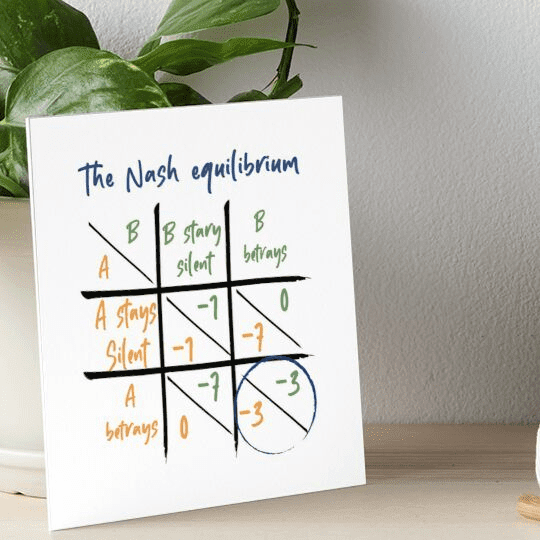 The Nash equilibrium
B
A
B stary
silent
B
betrays
A stays
Silent
-1
-1
0
-7
A
betrays
-7
0
-3
-3